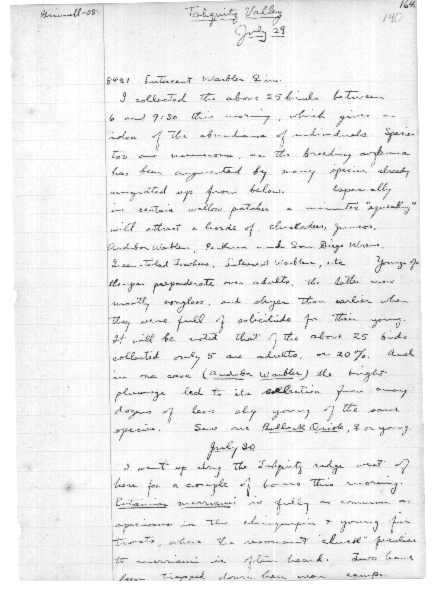 Grinnell-08.
164
140
Tahquitz Valley
July 29
8421 Lutescent Warbler ♀ im.
I collected the above 25 birds between
6 and 9:30 this morning, which gives an
idea of the abundance of individuals. Species
too are numerous, as the breeding avifauna
has been augmented by many species already
migrated up from below. Especially
in certain willow patches a minutes "squeaking"
will attract a horde of chickadees, juncos,
Audubon Warblers, Parkman and San Diego Wrens,
Green-tailed Towhees, Lutescent Warblers, etc. Young-of-
the-year preponderate over adults, the latter now
mostly songless, and shyer than earlier when
they were full of solicitude for their young.
It will be noted that of the above 25 birds
collected only 5 are adults, or 20%. And
in one case (Audubon Warbler) the bright
plumage led to its collection from among
dozens of less shy young of the same
species. Saw one Bullock Oriole, ♀ or young.
July 30
I went up along the Tahquitz ridge west of
here for a couple of hours this morning.
Eutamias merriami is fully as common as
speciosus in the chinquapin & young fir
tracts, where the resonant "cluck" peculiar
to merriami is often heard. Two have
been trapped down here near camp.